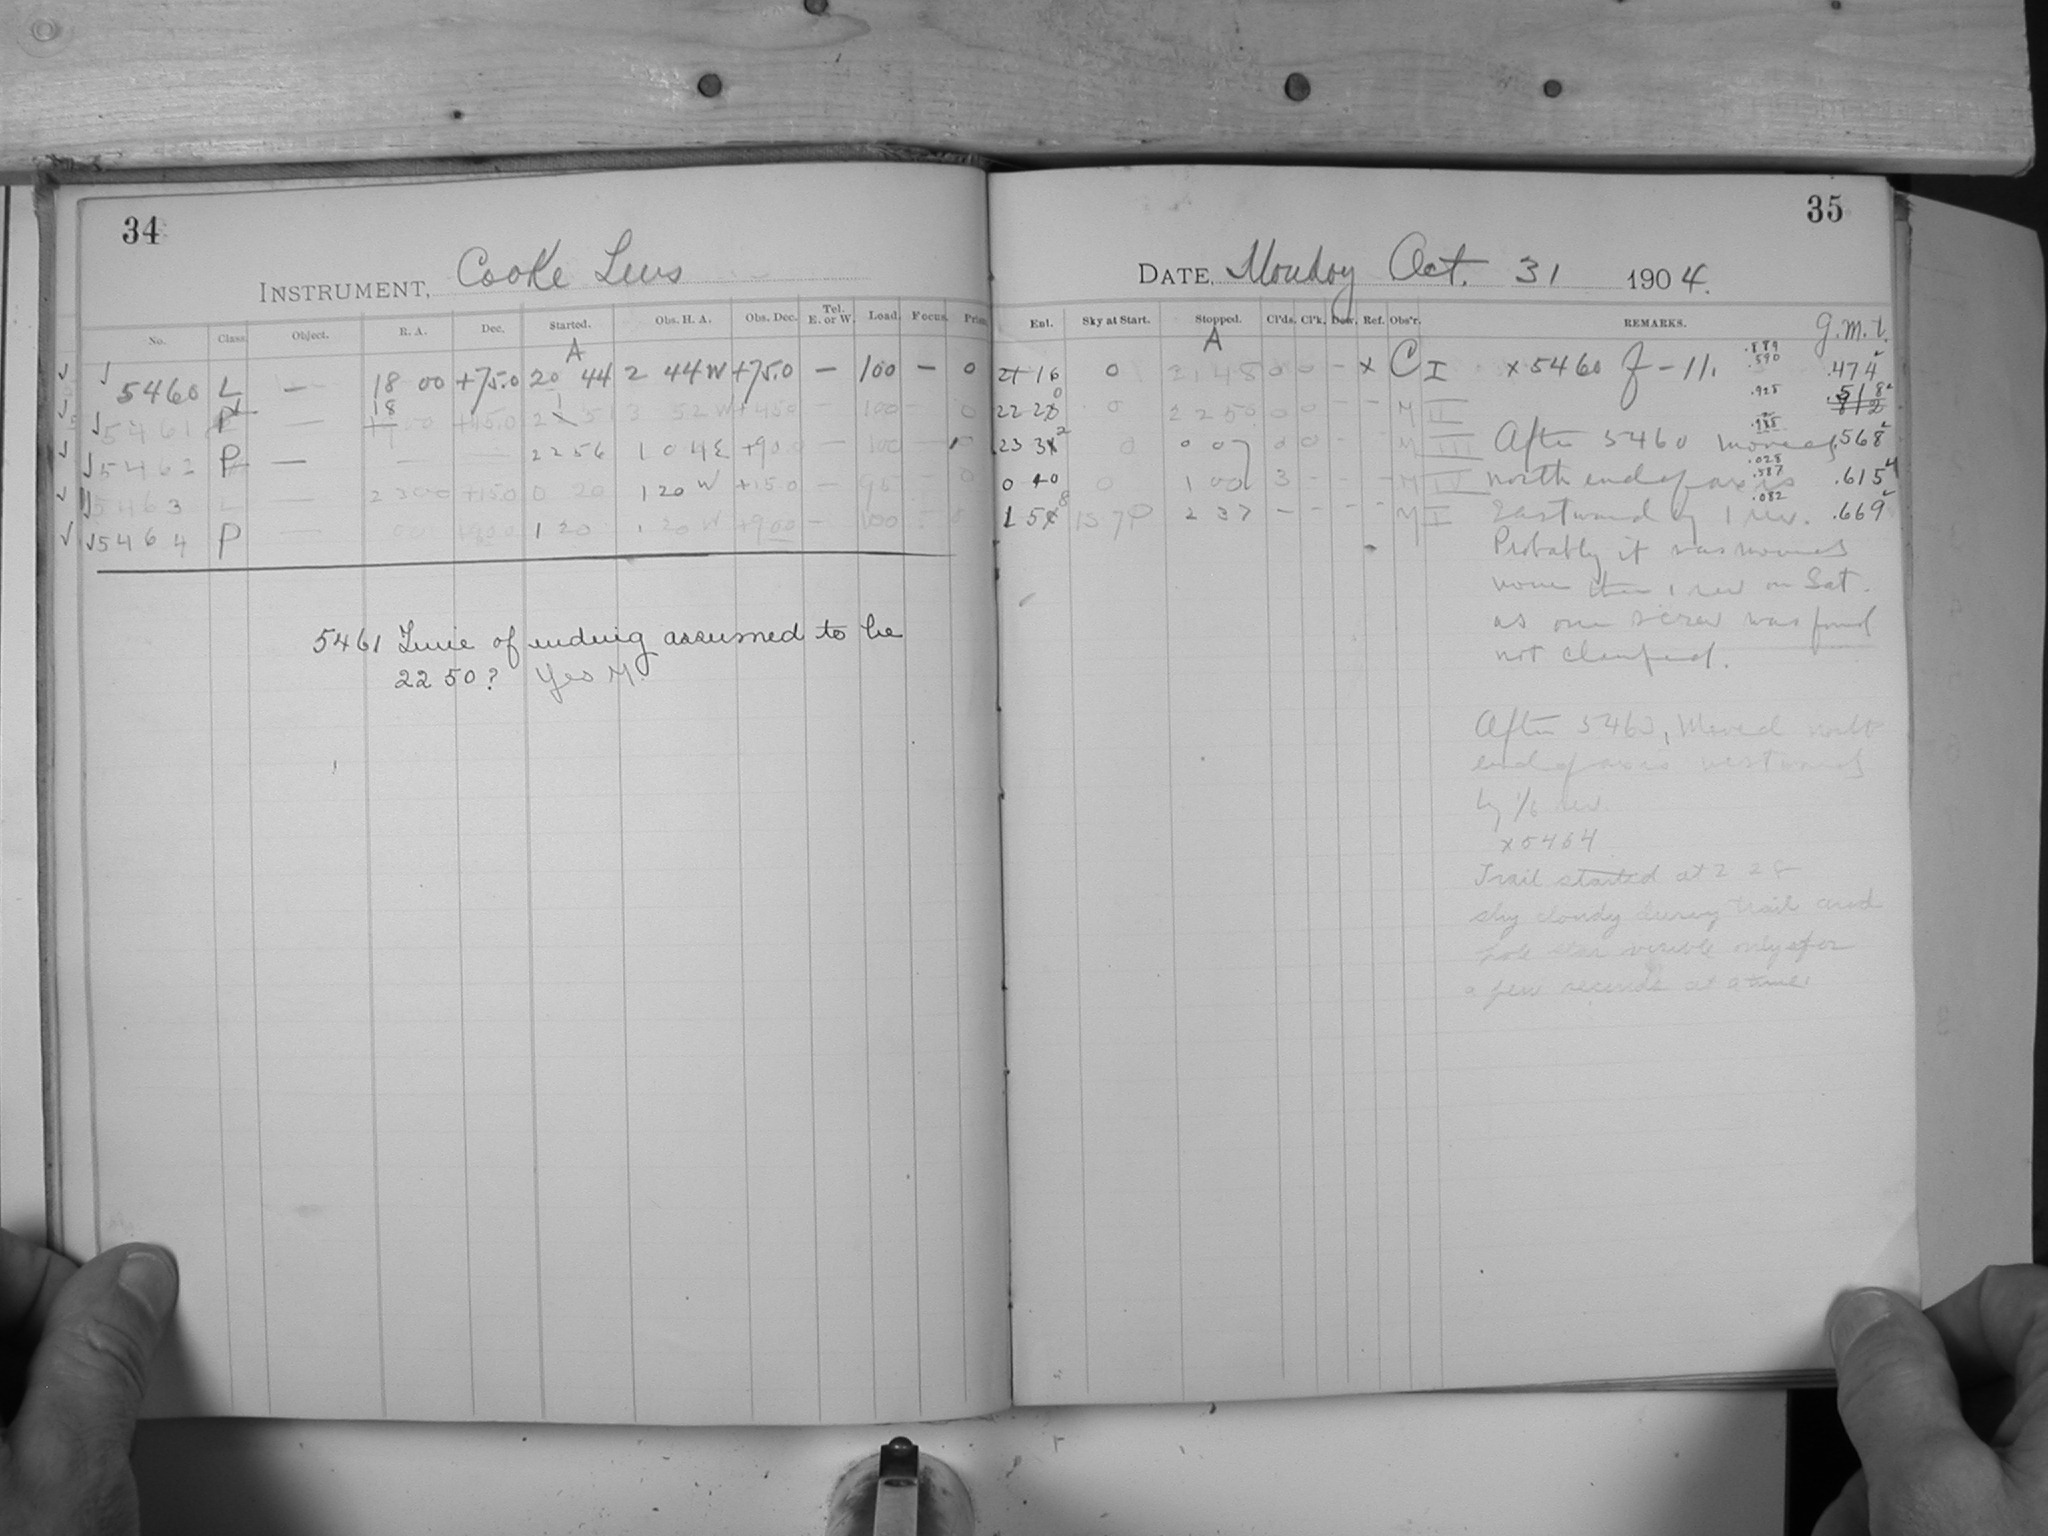 34
INSTRUMENT, Cooke Lens
No. Class. Object. R. A. Dec. Started. Obs. H. A. Obs. Dec. Tel. E. or W. Load. Focus. Prism
A
5460 L — 18 00 +75.0 20 44 2 44 W +75.0 — 100 — 0
5461 — 18 +45.0 51 3 52 W +45.0 — 100 — 0
5462 P — 22 56 1 04 E +90.0 — 100 — 0
5463 L — 23 00 +15.0 0 20 1 20 W +15.0 — 95 — 0
5464 P — +90.0 1 20 1 20 W +90.0 — 100
5461 Time of ending assumed to be
22 50? Yes M.
35
DATE, Monday Oct. 31 1904.
Ent. Sky at Start. Stopped. Cl'ds. Cl'k. Dew. Ref. Obs'r. REMARKS. G.M.T.
A
21 16 0 21 48 0 0 - x C I x 5460 f - 11. .889 .590 .474
22 20 0 22 50 0 0 - - M II .928 .518
23 32 0 0 07 0 0 - - M III After 5460 moved .568
0 40 0 1 00 3 - - - M IV north end of axis .028 .587 .615
1 58 157P 2 37 - - - - M I Eastward by 1 rev. .082 .669
Probably it was moved
more than 1 rev on Sat.
as one screw was found
not clamped.
After 5463, Moved north
end of axis westward
by 1/6 rev
x 5464
Trail started at 2 28
sky cloudy during trail and
pole star visible only for
a few seconds at a time.